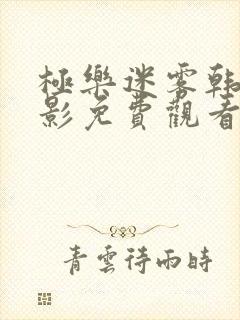 極樂迷霧韩
影免費觀看
青雲待雨時